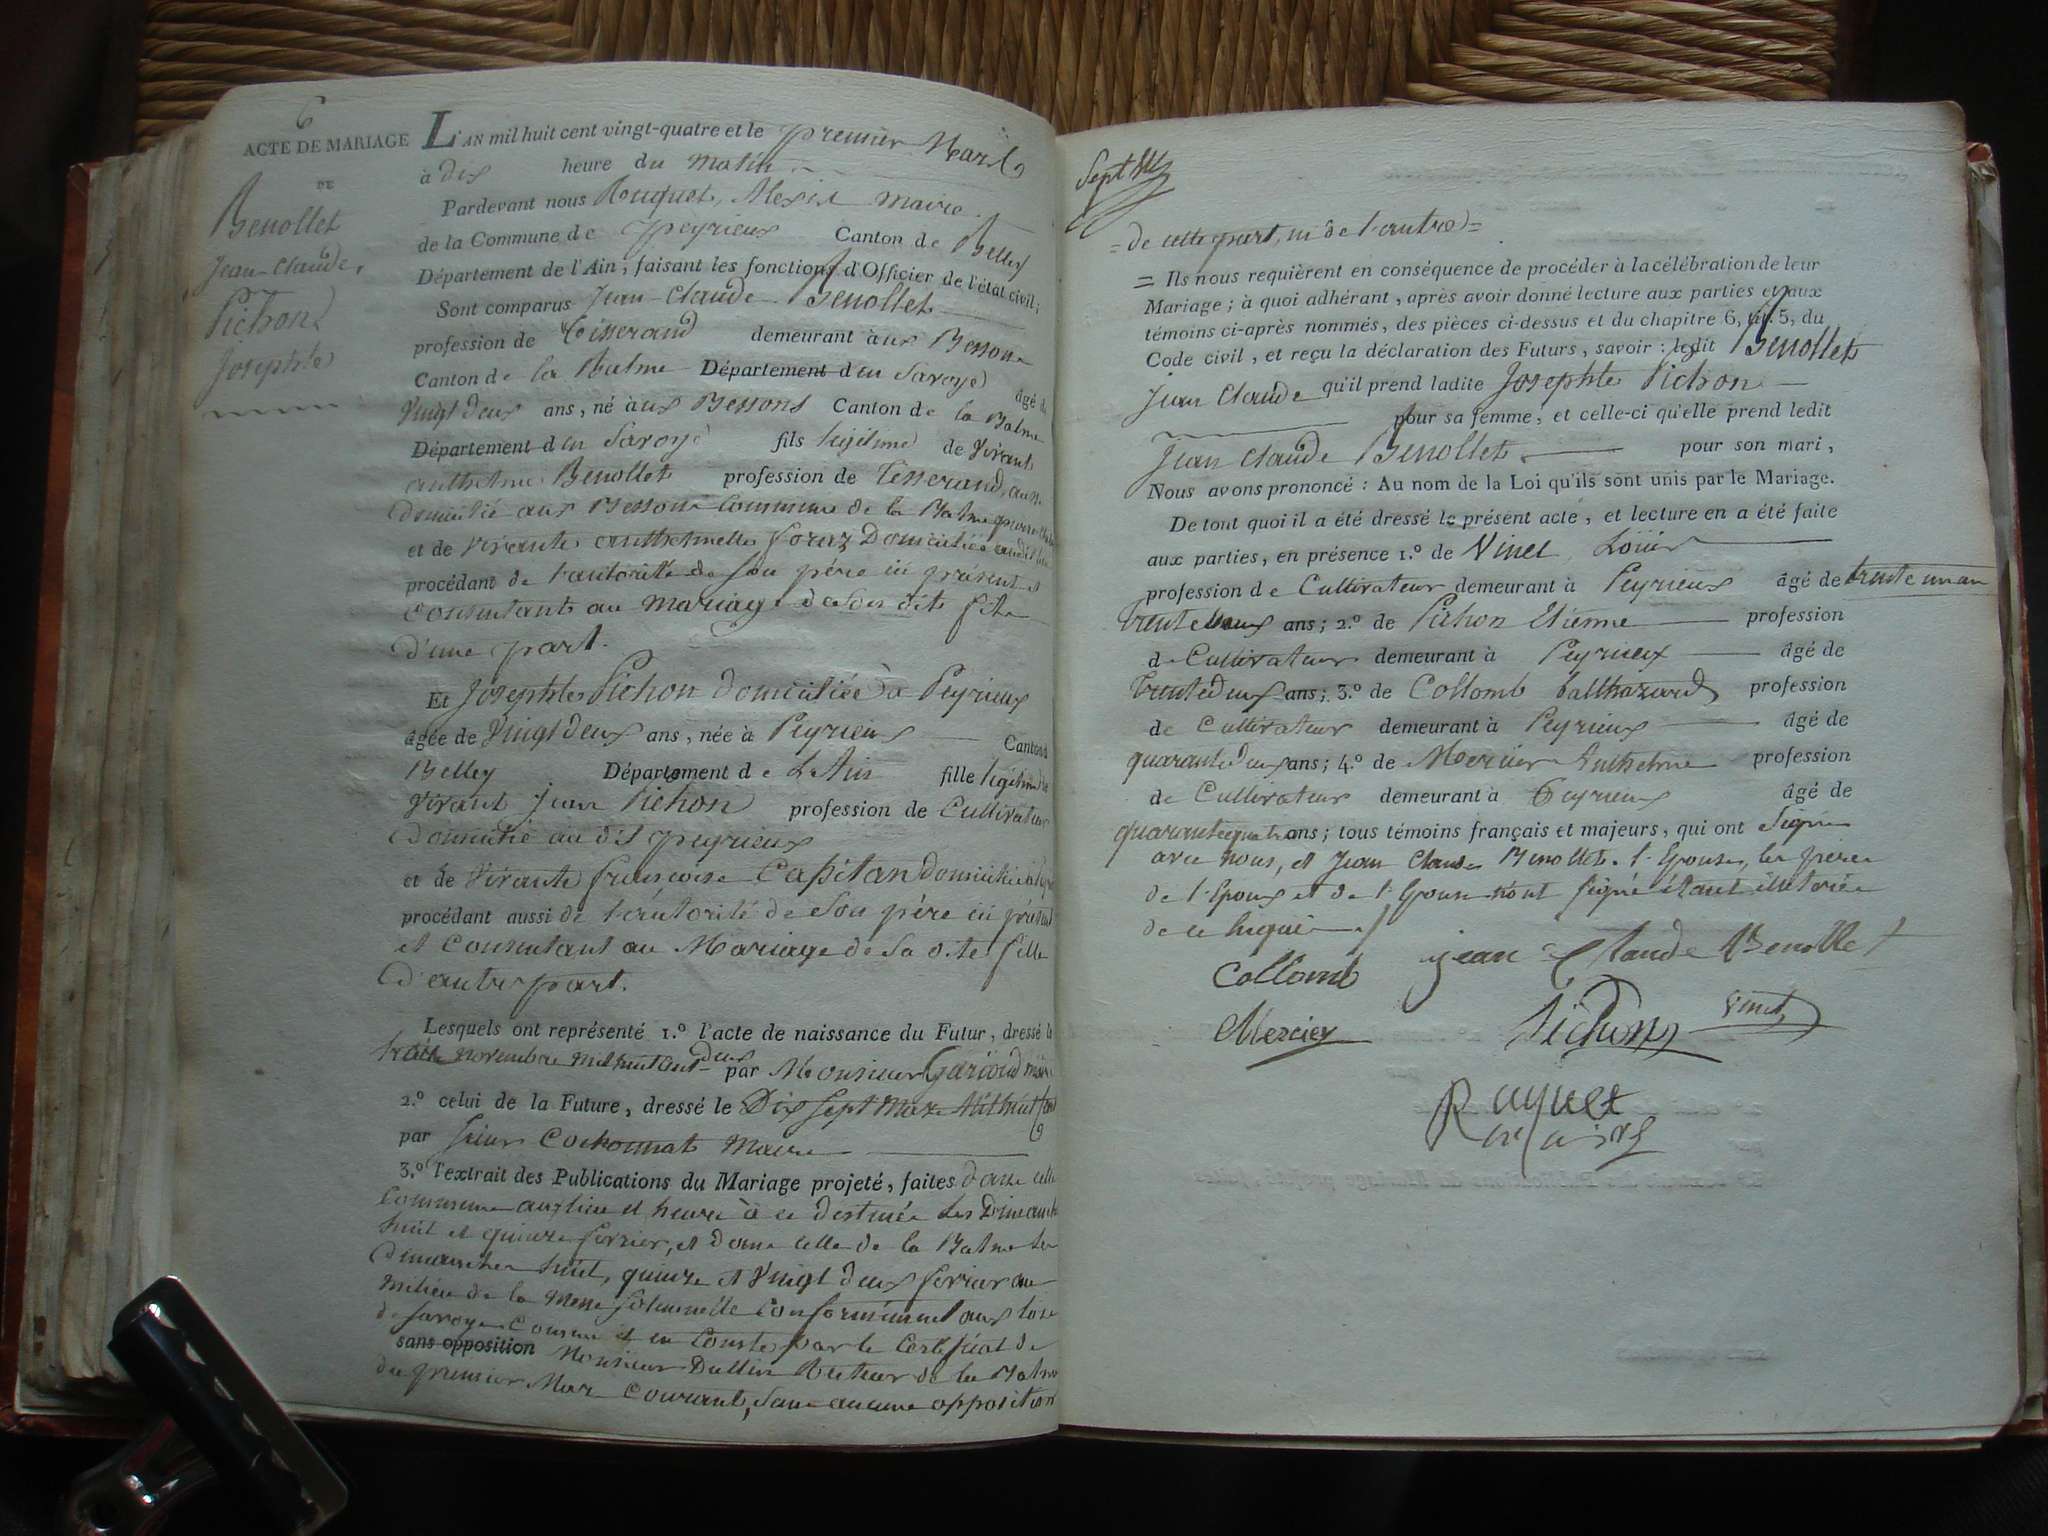 6
ACTE DE MARIAGE
DE
Benollet
Jean-Claude,
Pichon
Josephte
L'AN mil huit cent vingt-quatre et le premier Mars
à dix heure du matin
Pardevant nous Rouquet, Alexis maire
de la Commune de Peyrieux Canton de Belley
Département de l'Ain, faisant les fonctions d'Officier de l'état civil;
Sont comparus Jean-Claude Benollet
profession de tisserand demeurant aux Bessons
Canton de la Balme Département d en Savoye âgé de
vingt deux ans, né aux Bessons Canton de la Balme
Département d en Savoye fils légitime de vivant
anthelme Benollet profession de Tisserand, aussi
domicilié aux Bessons commune de la Balme
et de vivante anthelmette foraz Domiciliée audit lieu
procédant de l'autorité de son père ici présent et
consentant au mariage de son dit fils
d'une part.
Et Josephte Pichon domiciliée à Peyrieux
âgée de vingt deux ans, née à Peyrieux Canton de
Belley Département de L'Ain fille légitime de
vivant Jean Pichon profession de Cultivateur
domicilié au dit peyrieux
et de vivante françoise Capitan domiciliée
procédant aussi de l'autorité de son père ici présent
et consentant au Mariage de sa dite fille
d'autre part.
Lesquels ont représenté 1.º l'acte de naissance du Futur, dressé le
novembre mil huit cent deux par Monsieur Garioud maire
2.º celui de la Future, dressé le Dix sept Mars Mil huit cent
par Cochonnat Maire
3.º l'extrait des Publications du Mariage projeté, faites dans cette
Commune aux lieu et heure à ce destinée les Dimanche
huit et quinze fevrier, et dans celle de la Balme les
dimanches huit, quinze et vingt deux fevrier au
milieu de la Messe solennelle conformément aux lois
de Savoye comme il en conste par le Certificat de
sans opposition Monsieur Dullin Recteur de la Balme
du premier Mars courant, sans aucune opposition
Sept
= de cette part, ni de l'autre =
= Ils nous requièrent en conséquence de procéder à la célébration de leur
Mariage; à quoi adhérant, après avoir donné lecture aux parties et aux
témoins ci-après nommés, des pièces ci-dessus et du chapitre 6, tit. 5, du
Code civil, et reçu la déclaration des Futurs, savoir: ledit Benollet
Jean Claude qu'il prend ladite Josephte Pichon
pour sa femme, et celle-ci qu'elle prend ledit
Jean Claude Benollet pour son mari,
Nous avons prononcé: Au nom de la Loi qu'ils sont unis par le Mariage.
De tout quoi il a été dressé le présent acte, et lecture en a été faite
aux parties, en présence 1.º de Vinet Louis
profession de Cultivateur demeurant à Peyrieux âgé de trente un an
trente deux ans; 2.º de Pichon Etienne profession
de Cultivateur demeurant à Peyrieux âgé de
trente deux ans; 3.º de Collomb balthazard profession
de Cultivateur demeurant à Peyrieux âgé de
quarante deux ans; 4.º de Mercier Anthelme profession
de Cultivateur demeurant à Peyrieux âgé de
quarante quatre ans; tous témoins français et majeurs, qui ont signé
avec nous, et Jean Claude Benollet. l'Epouse, les pères
de l'Epoux et de l'Epouse n'ont signé étant illetérés
de ce requis
Collomb jean Claude Benollet
Mercier Pichon Vinet
Rouquet
maire